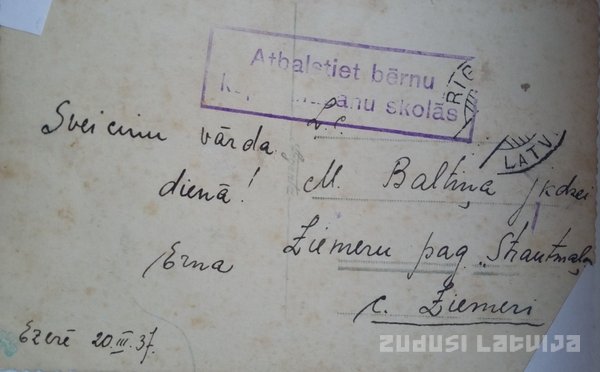 Atbalstiet bērnu
skolās
RĪG
LATV.
Sveicinu vārda
dienā!
Erna
Ezerē 20.III.37.
L.c.
M. Baltiņa jkdzei
Ziemeru pag. „Strautmaļa
c. Ziemeri
ZUDUSI LATVIJA